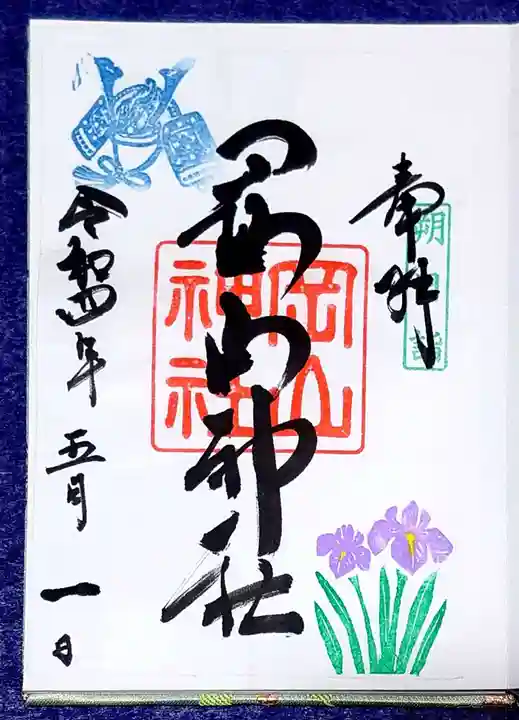 奉拝
朔日詣
岡山神社
岡山
神社
令和四年五月一日